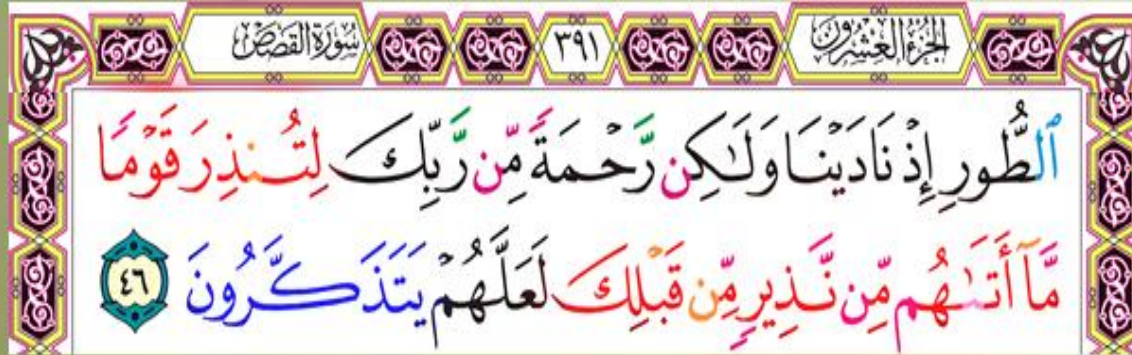 الجزء العشرون ٣٩١ سورة القصص
ٱلطُّورِ إِذْ نَادَيْنَا وَلَٰكِن رَّحْمَةً مِّن رَّبِّكَ لِتُنذِرَ قَوْمًا
مَّآ أَتَىٰهُم مِّن نَّذِيرٍ مِّن قَبْلِكَ لَعَلَّهُمْ يَتَذَكَّرُونَ ٤٦